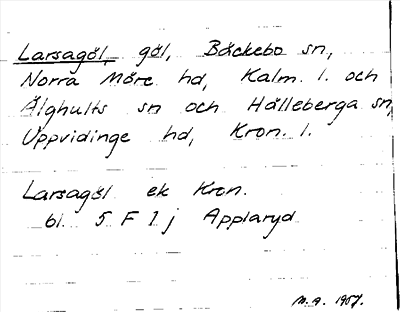 Larsagöl, göl, Bäckebo sn,
Norra Möre hd, Kalm. l. och
Älghults sn och Hälleberga sn,
Uppvidinge hd, Kron. l.
Larsagöl ek Kron.
bl. 5 F 1 j Applaryd
M.A. 1957.